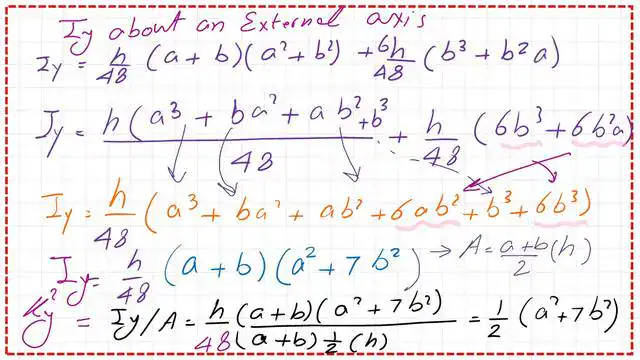 Iy about an External axis
Iy = h/48 (a+b)(a²+b²) + 6h/48 (b³+b²a)
Iy = h(a³+ba²+ab²+b³)/48 + h/48 (6b³+6b²a)
Iy = h/48 (a³+ba²+ab²+6ab²+b³+6b³)
Iy = h/48 (a+b)(a²+7b²) → A = a+b/2 (h)
Ky² = Iy/A = h/48 (a+b)(a²+7b²)/(a+b) 1/2 (h) = 1/2 (a²+7b²)